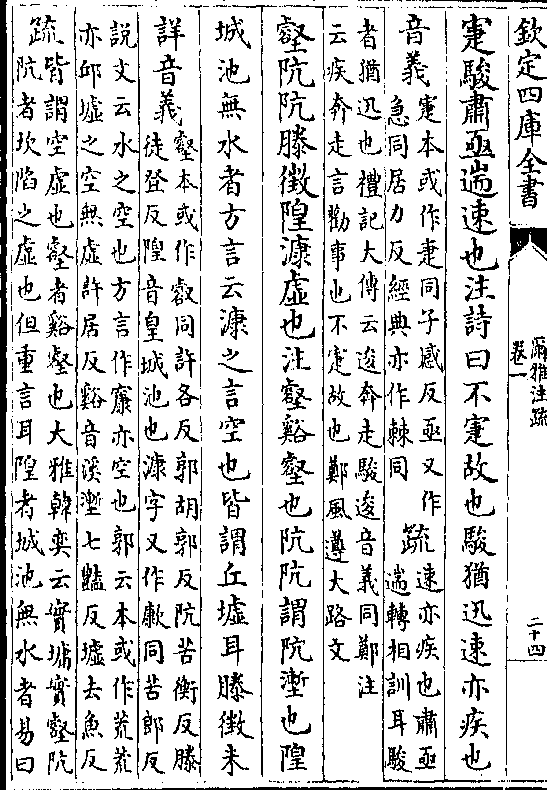 欽定四庫全書
爾雅注疏
卷一
二十四
寁駿肅亟遄速也注詩曰不寁故也駿猶迅速亦疾也
音義
寁本或作疌同子感反亟又作
急同居力反經典亦作棘同
疏
速亦疾也肅亟
遄轉相訓耳駿
者猶迅也禮記大傳云逡奔走駿逡音義同鄭注
云疾奔走言勸事也不寁故也鄭風遵大路文
壑阬阬滕徴隍漮虚也注壑谿壑也阬阬謂阬壍也隍
城池無水者方言云漮之言空也皆謂丘墟耳滕徴未
詳音義
壑本或作叡同許各反郭胡郭反阬苦衡反滕
徒登反隍音皇城池也漮字又作歉同苦郎反
說文云水之空也方言作㝩亦空也郭云本或作荒荒
亦邱墟之空無虚許居反谿音溪壍七豔反墟去魚反
疏
皆謂空虚也壑者谿壑也大雅韓奕云實墉實壑阬
阬者坎陷之虚也但重言耳隍者城池無水者易曰